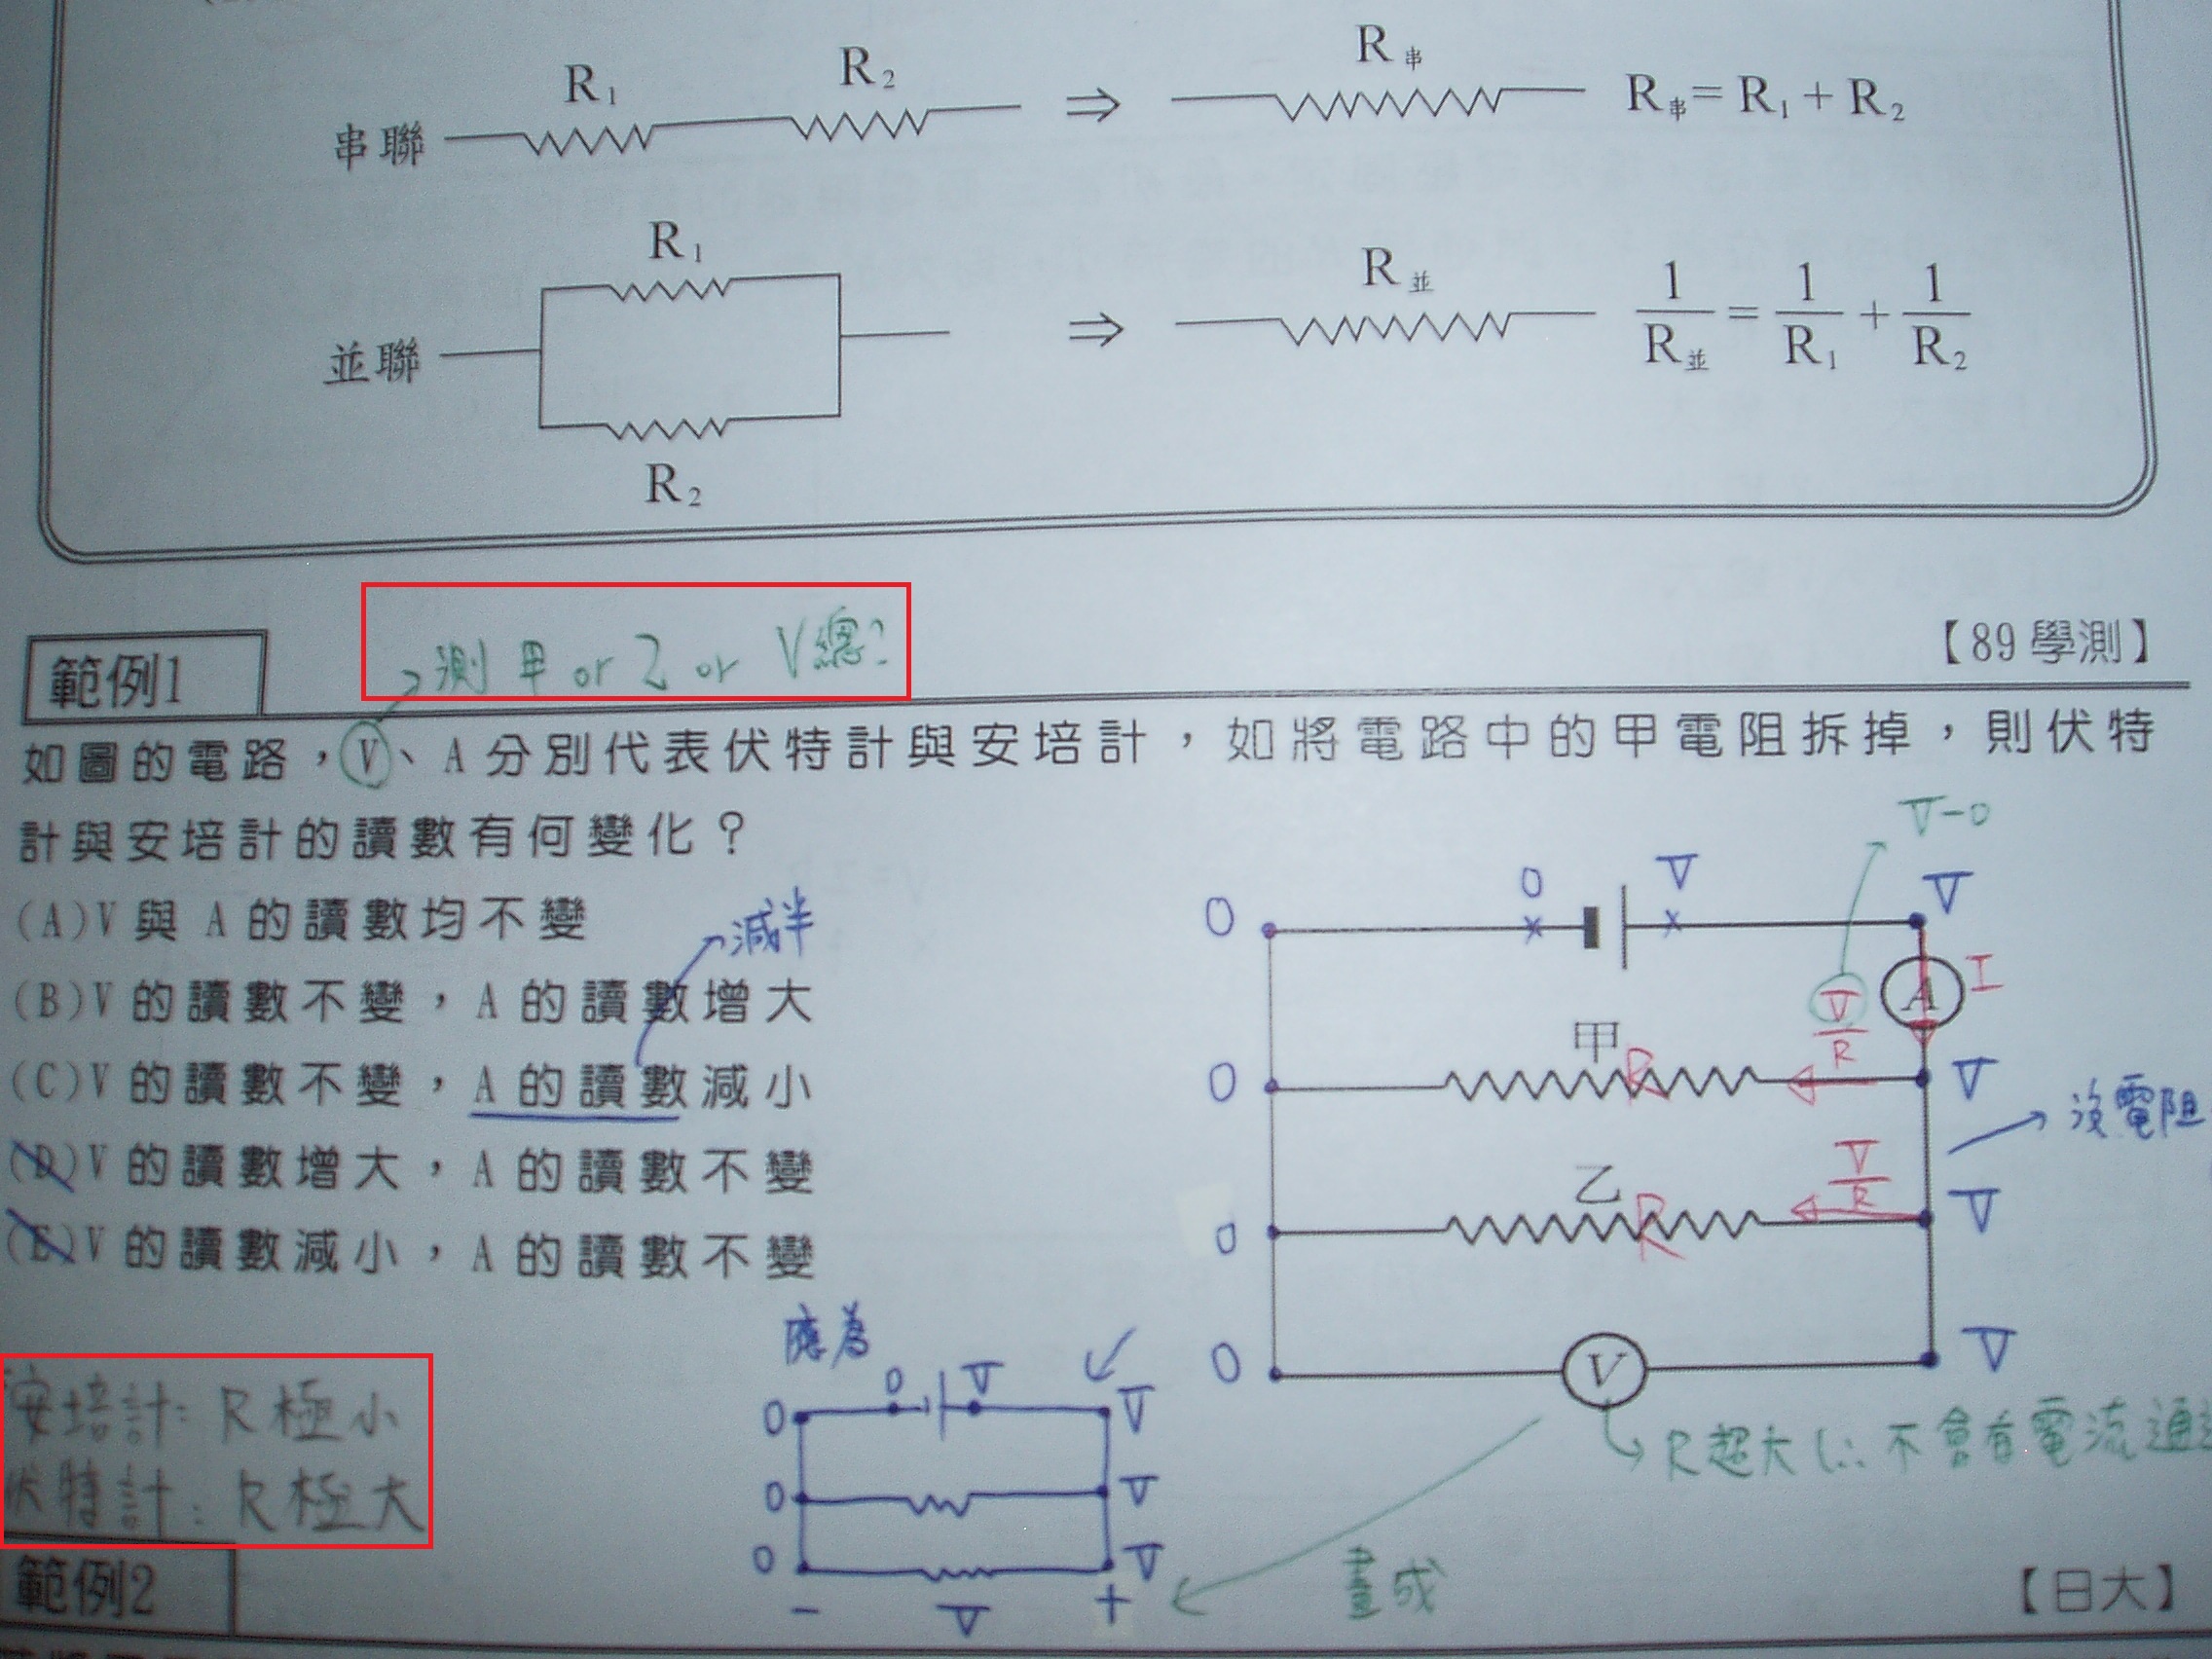 R₁ R₂ R串
串聯 ⇒ R串= R₁ + R₂
R₁ R並
並聯 ⇒ 1/R並 = 1/R₁ + 1/R₂
R₂
→測 甲 or 乙 or V總?
範例1 【89學測】
如圖的電路，V、A分別代表伏特計與安培計，如將電路中的甲電阻拆掉，則伏特
計與安培計的讀數有何變化？
(A)V與 A的讀數均不變
→減半
(B)V的讀數不變，A的讀數增大
(C)V的讀數不變，A的讀數減小
(D)V的讀數增大，A的讀數不變
(E)V的讀數減小，A的讀數不變
V-0
0 0 V V
V/R A I
甲 R
0 V
→沒電阻
V/R
乙 R
0 V
0 V V
→R超大(∴不會有電流通
應為
0 0 V V
0 V
0 V
- V +
畫成
安培計: R極小
伏特計: R極大
範例2 【日大】